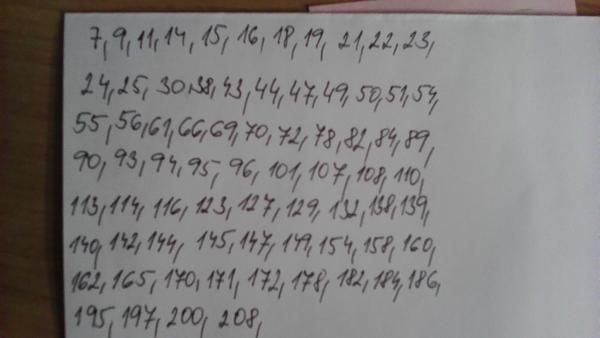 7, 9, 11, 14, 15, 16, 18, 19, 21, 22, 23,
24, 25, 30, 38, 43, 44, 47, 49, 50, 51, 54,
55, 56, 61, 66, 69, 70, 72, 78, 82, 84, 89,
90, 93, 94, 95, 96, 101, 107, 108, 110,
113, 114, 116, 123, 127, 129, 132, 138, 139,
140, 142, 144, 145, 147, 149, 154, 158, 160,
162, 165, 170, 171, 172, 178, 182, 184, 186,
195, 197, 200, 208,